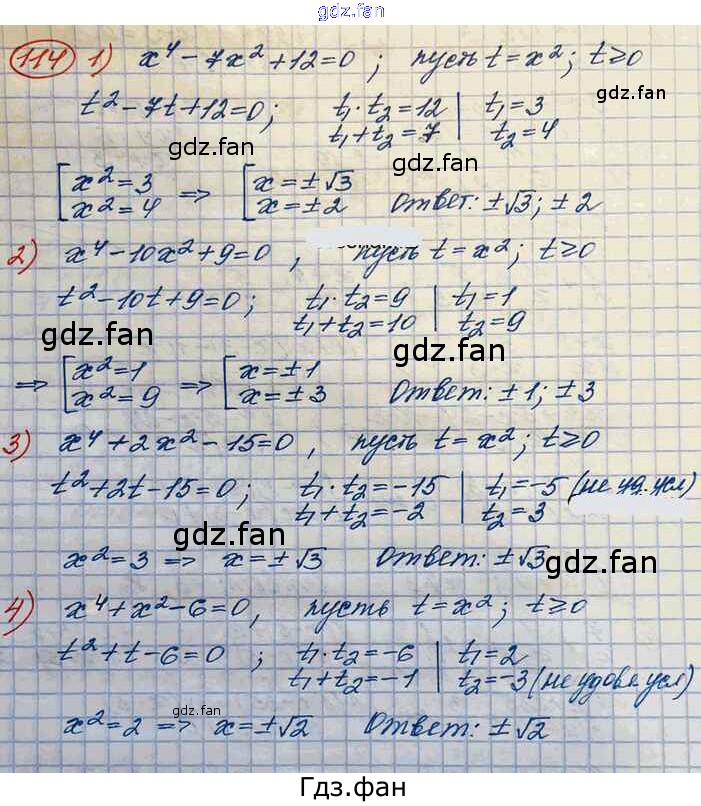 gdz.fan
114 1) x⁴ − 7x² + 12 = 0 ; пусть t = x² ; t ≥ 0
t² − 7t + 12 = 0 ; t₁ · t₂ = 12 | t₁ = 3
t₁ + t₂ = 7 | t₂ = 4
gdz.fan
gdz.fan
[ x² = 3 ⇒ [ x = ± √3
x² = 4 x = ± 2 Ответ: ± √3 ; ± 2
2) x⁴ − 10x² + 9 = 0 , пусть t = x² ; t ≥ 0
t² − 10t + 9 = 0 ; t₁ · t₂ = 9 | t₁ = 1
t₁ + t₂ = 10 | t₂ = 9
gdz.fan
gdz.fan
⇒ [ x² = 1 ⇒ [ x = ± 1
x² = 9 x = ± 3 Ответ: ± 1 ; ± 3
3) x⁴ + 2x² − 15 = 0 , пусть t = x² ; t ≥ 0
t² + 2t − 15 = 0 ; t₁ · t₂ = −15 | t₁ = −5 (не уд. усл)
t₁ + t₂ = −2 | t₂ = 3
gdz.fan
x² = 3 ⇒ x = ± √3 Ответ: ± √3
gdz.fan
4) x⁴ + x² − 6 = 0 , пусть t = x² ; t ≥ 0
t² + t − 6 = 0 ; t₁ · t₂ = −6 | t₁ = 2
t₁ + t₂ = −1 | t₂ = −3 (не удовл усл)
gdz.fan
x² = 2 ⇒ x = ± √2 Ответ: ± √2
Гдз.фан